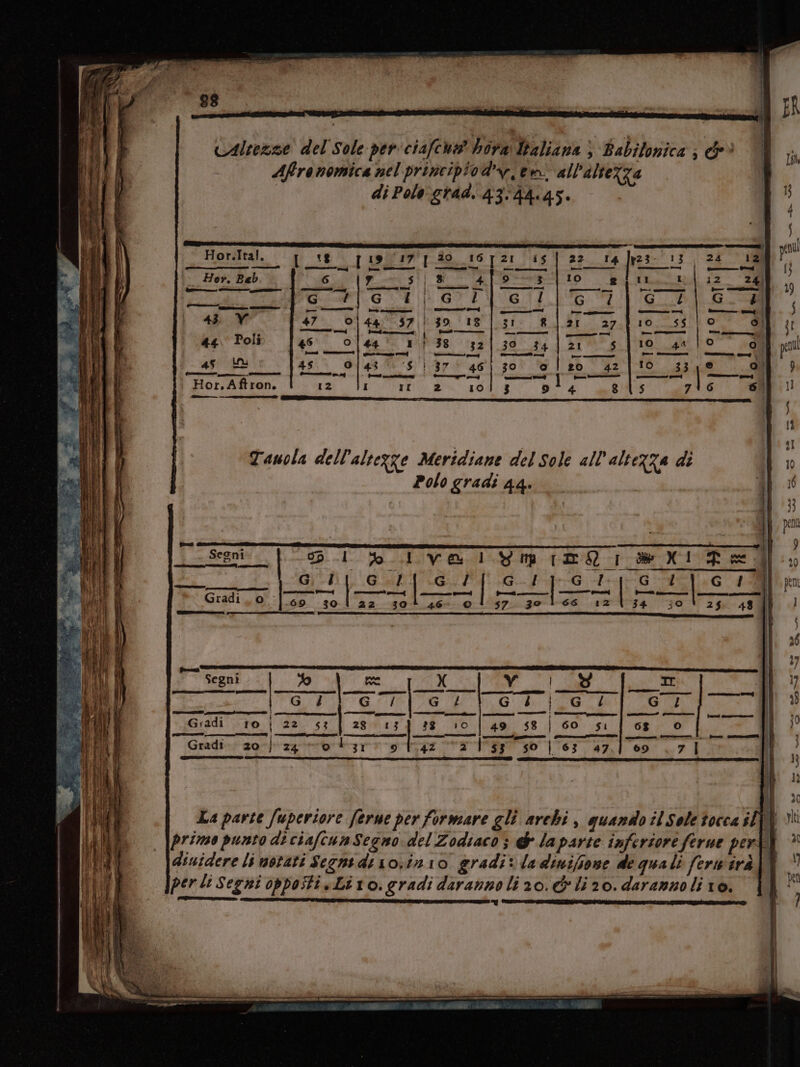 98
Altezze del Sole per ciascun' hora Italiana ; Babilonica ; &
Astronomica nel principio d'♈, e ♎. all'altezza
di Polo grad. 43. 44. 45.
Hor.Ital. | 18 | 19 17 | 20 16 | 21 15 | 22 14 | 23 13 | 24 12
Hor. Bab. | 6 | 7 5 | 8 4 | 9 3 | 10 2 | 11 1 | 12 24
G I | G I | G I | G I | G I | G I | G I
43 ♈ | 47 0 | 44 57 | 39 18 | 31 8 | 21 27 | 10 55 | 0 0
44 Poli | 46 0 | 44 1 | 38 32 | 30 34 | 21 5 | 10 44 | 0 0
45 ♎ | 45 0 | 43 5 | 37 46 | 30 0 | 20 42 | 10 33 | 0 0
Hor. Astron. | 12 | 1 11 | 2 10 | 3 9 | 4 8 | 5 7 | 6 6
Tauola dell'altezze Meridiane del Sole all'altezza di
Polo gradi 44.
Segni | ♋ | ♑ | ♈ ♎ | ♉ ♍ | ♊ ♌ | ♒ ♓ | ♐ ♒
G I | G I | G I | G I | G I | G I | G I
Gradi 0 | 69 30 | 22 30 | 46 0 | 57 30 | 66 12 | 34 30 | 25 48
Segni | ♑ | ♒ | ♓ | ♈ | ♉ | ♊
G I | G I | G I | G I | G I | G I
Gradi 10 | 22 53 | 28 13 | 38 10 | 49 58 | 60 51 | 68 0
Gradi 20 | 24 0 | 31 9 | 42 2 | 53 50 | 63 47 | 69 7
La parte superiore serue per formare gli archi, quando il Sole tocca il
primo punto di ciascun Segno del Zodiaco ; & la parte inferiore serue per
diuidere li notati Segni di 10. in 10 gradi: la diuisione de quali seruirà
per li Segni opposti. Li 10. gradi daranno li 20. & li 20. daranno li 10.